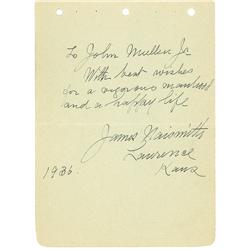 To John Mullen Jr
With best wishes
for a vigorous manhood
and a happy life
James Naismith
Lawrence
Kans
1936.